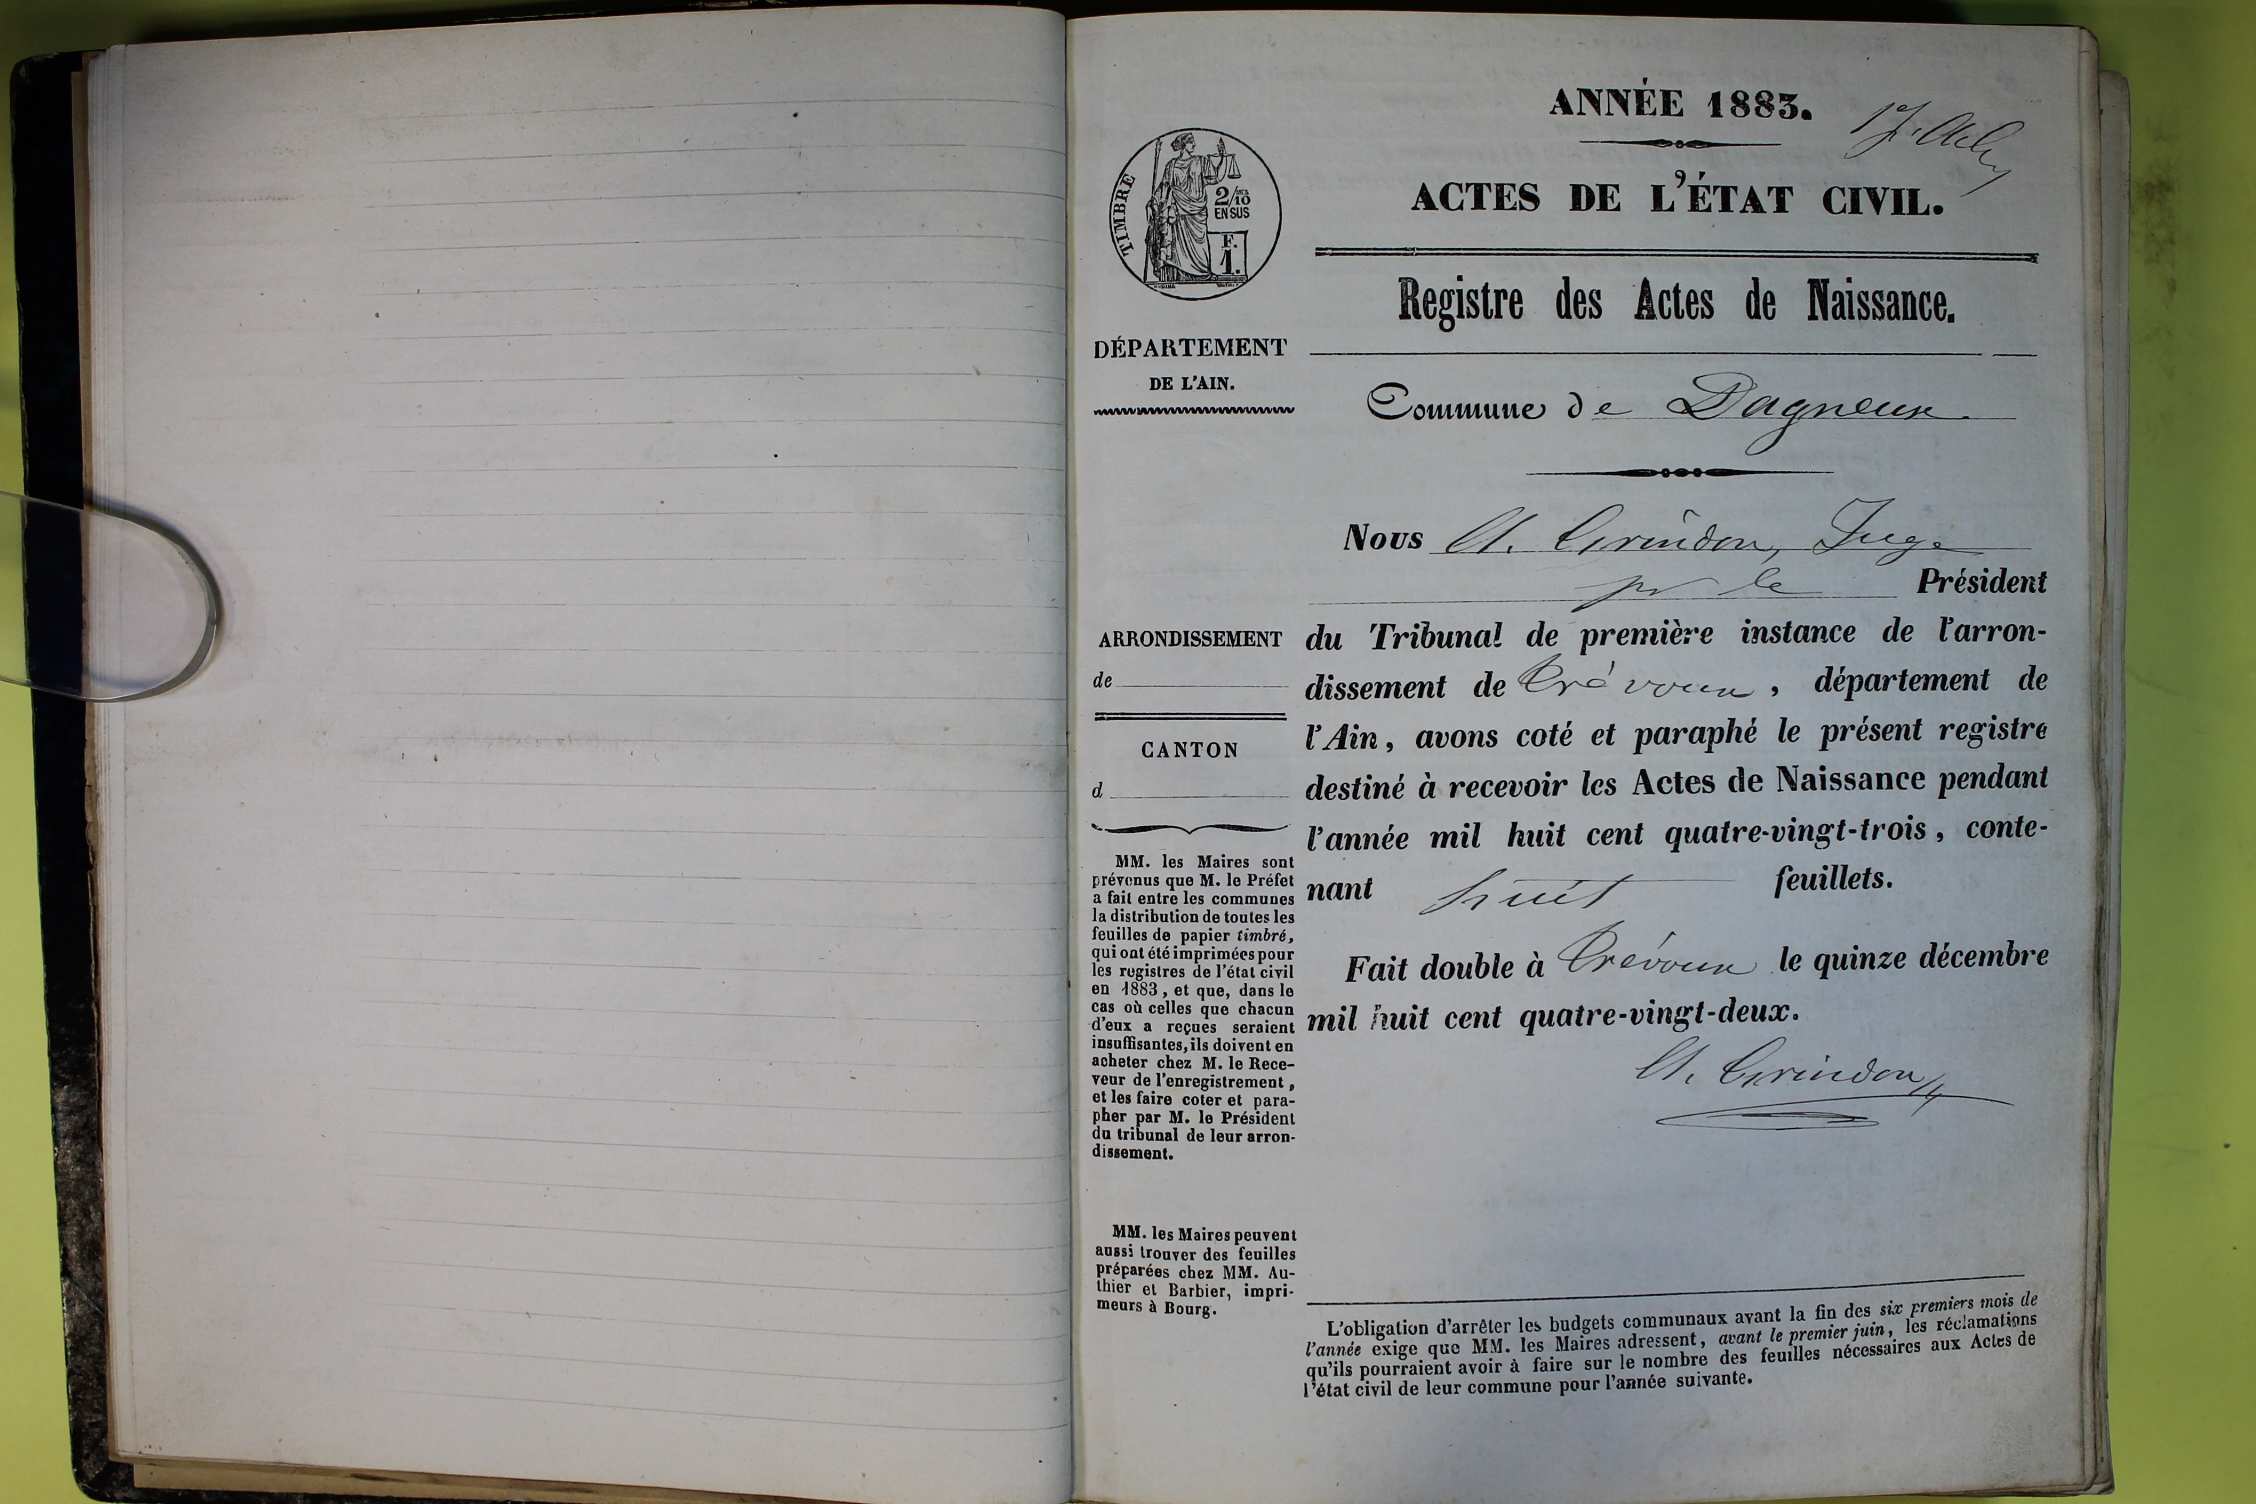 ANNÉE 1883.
ACTES DE L'ÉTAT CIVIL.
TIMBRE
2/10
EN SUS
F.
1.
Registre des Actes de Naissance.
DÉPARTEMENT
DE L'AIN.
Commune de Dagneux
Nous A. Grindon, Juge
pr le Président
du Tribunal de première instance de l'arron-
dissement de Trévoux, département de
l'Ain, avons coté et paraphé le présent registre
destiné à recevoir les Actes de Naissance pendant
l'année mil huit cent quatre-vingt-trois, conte-
nant huit feuillets.
Fait double à Trévoux le quinze décembre
mil huit cent quatre-vingt-deux.
A. Grindon
ARRONDISSEMENT
de
CANTON
d
MM. les Maires sont
prévenus que M. le Préfet
a fait entre les communes
la distribution de toutes les
feuilles de papier timbré,
qui ont été imprimées pour
les registres de l'état civil
en 1883, et que, dans le
cas où celles que chacun
d'eux a reçues seraient
insuffisantes, ils doivent en
acheter chez M. le Rece-
veur de l'enregistrement,
et les faire coter et para-
pher par M. le Président
du tribunal de leur arron-
dissement.
MM. les Maires peuvent
aussi trouver des feuilles
préparées chez MM. Au-
thier et Barbier, impri-
meurs à Bourg.
L'obligation d'arrêter les budgets communaux avant la fin des six premiers mois de
l'année exige que MM. les Maires adressent, avant le premier juin, les réclamations
qu'ils pourraient avoir à faire sur le nombre des feuilles nécessaires aux Actes de
l'état civil de leur commune pour l'année suivante.